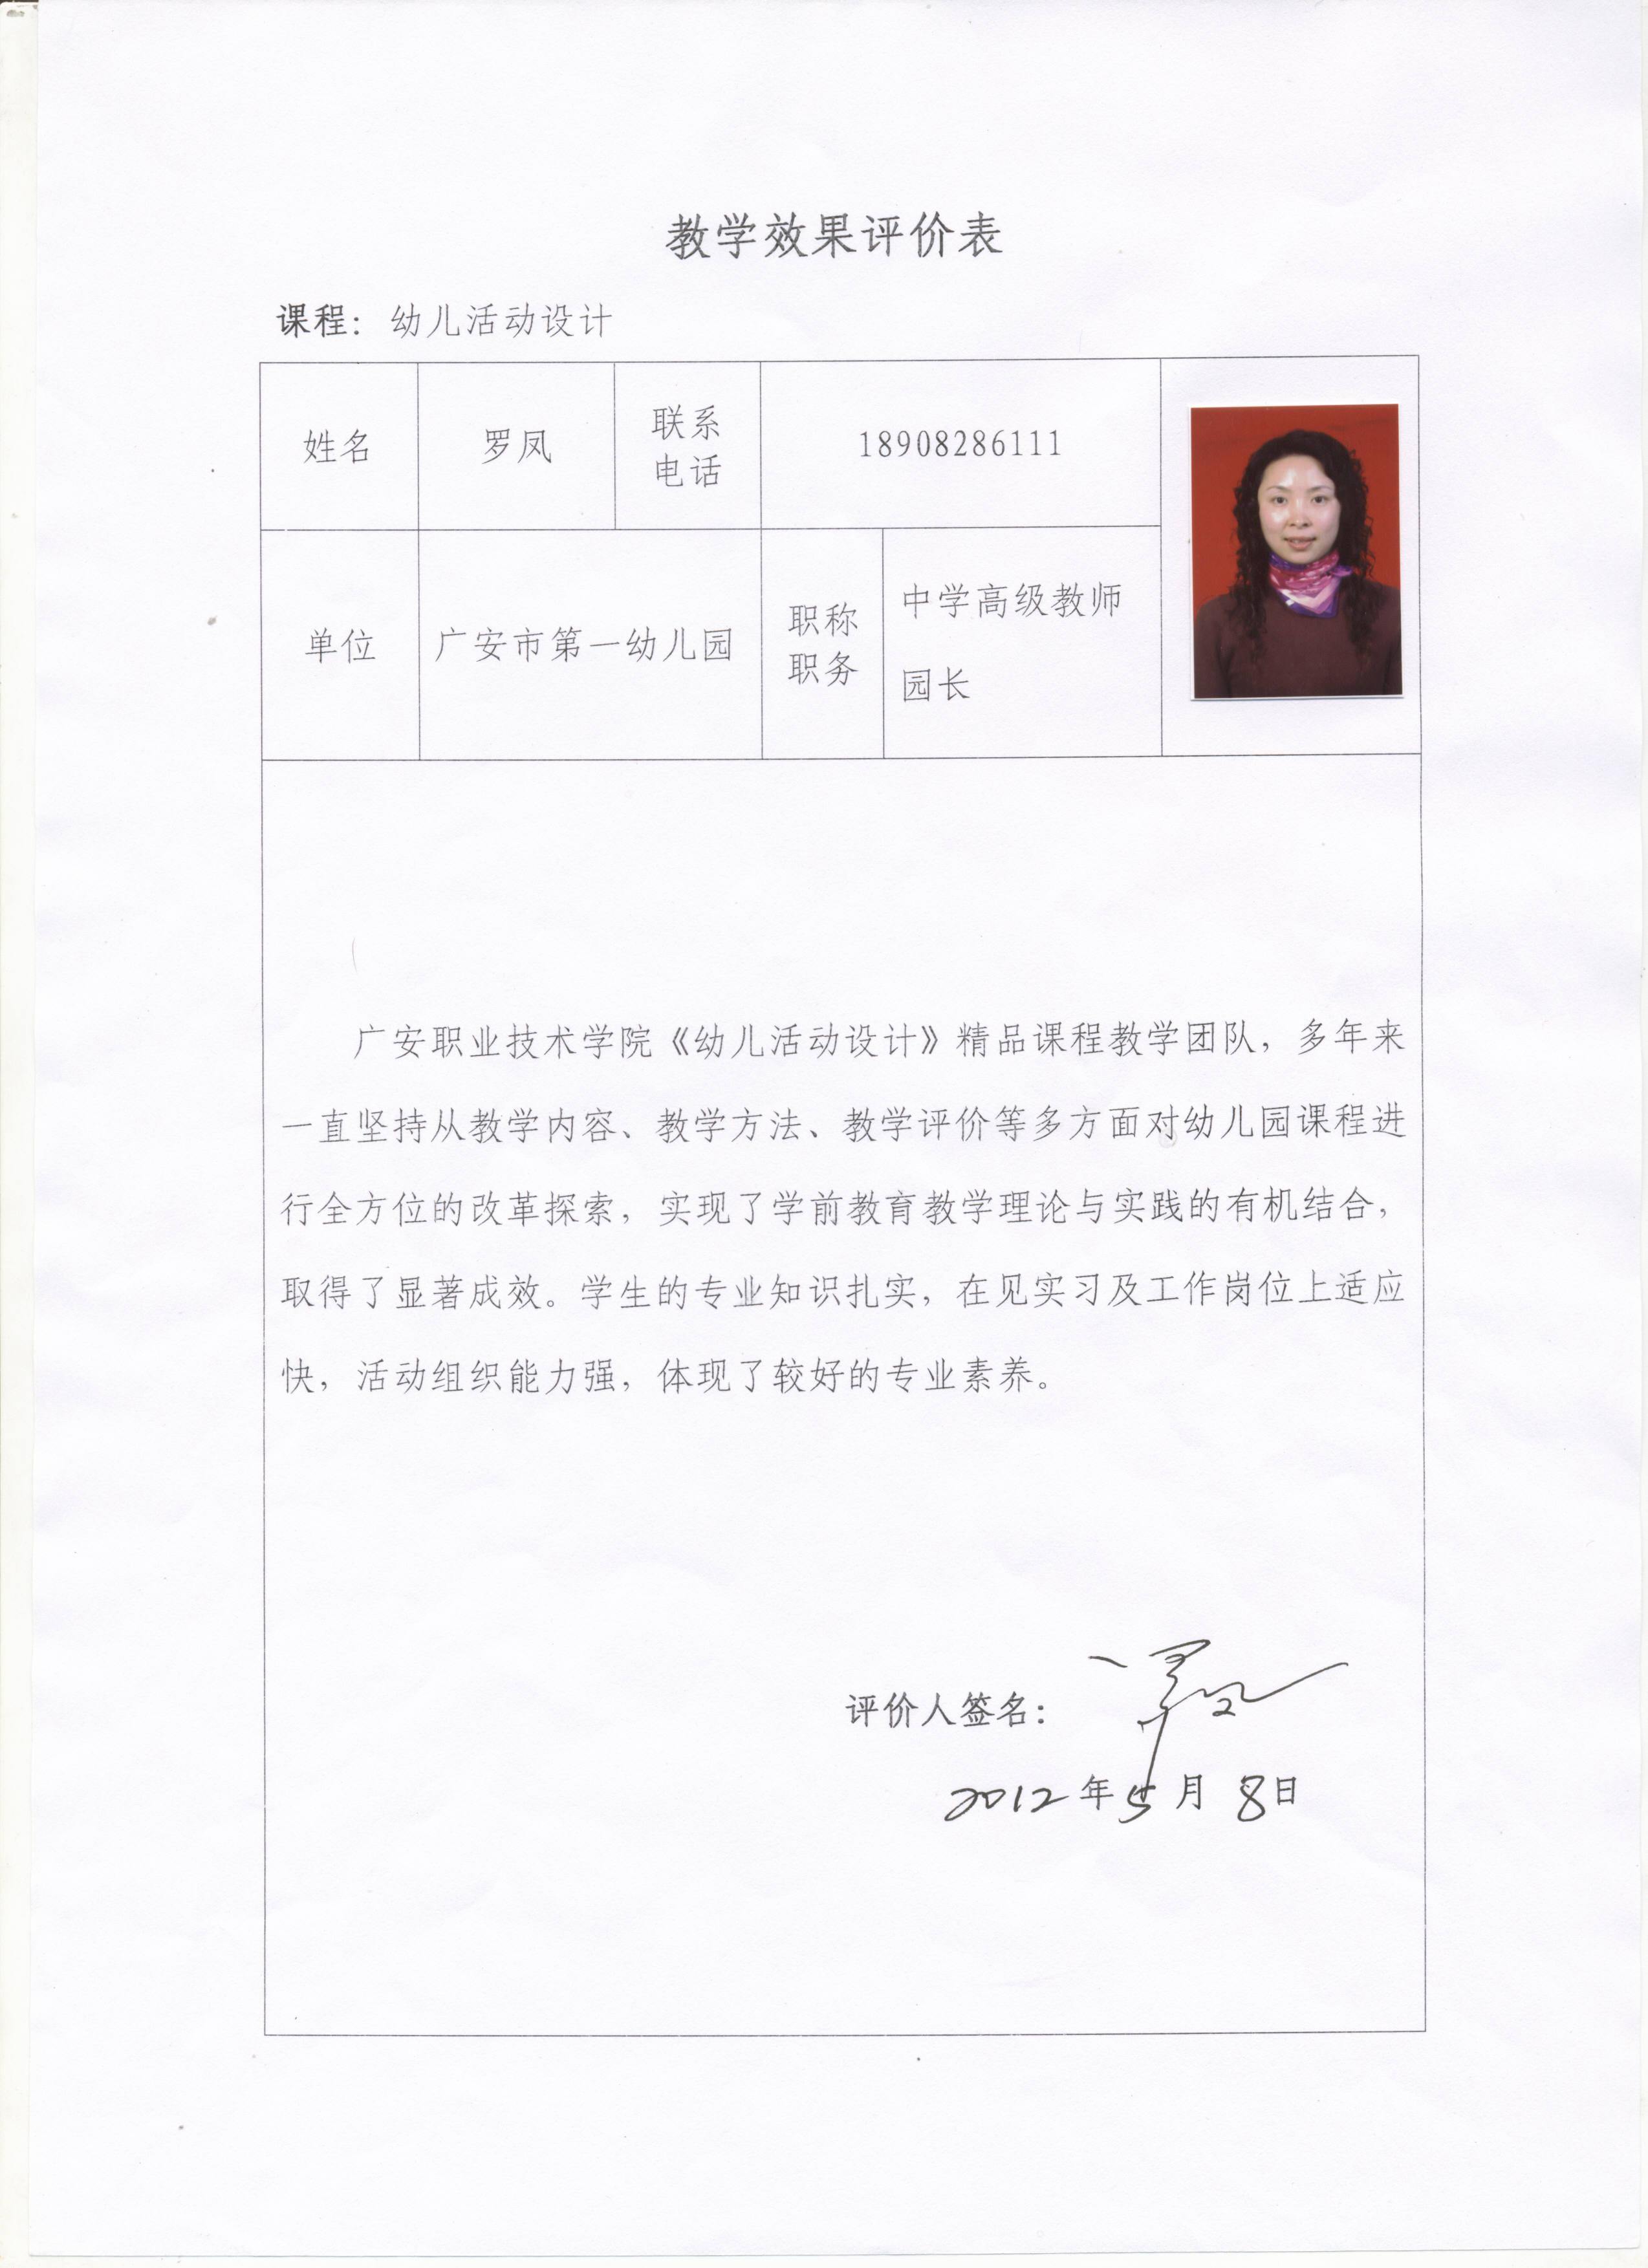 教学效果评价表
课程：幼儿活动设计
姓名 罗凤 联系电话 18908286111
单位 广安市第一幼儿园 职称职务 中学高级教师 园长
广安职业技术学院《幼儿活动设计》精品课程教学团队，多年来
一直坚持从教学内容、教学方法、教学评价等多方面对幼儿园课程进
行全方位的改革探索，实现了学前教育教学理论与实践的有机结合，
取得了显著成效。学生的专业知识扎实，在见实习及工作岗位上适应
快，活动组织能力强，体现了较好的专业素养。
评价人签名：罗凤
2012年5月8日